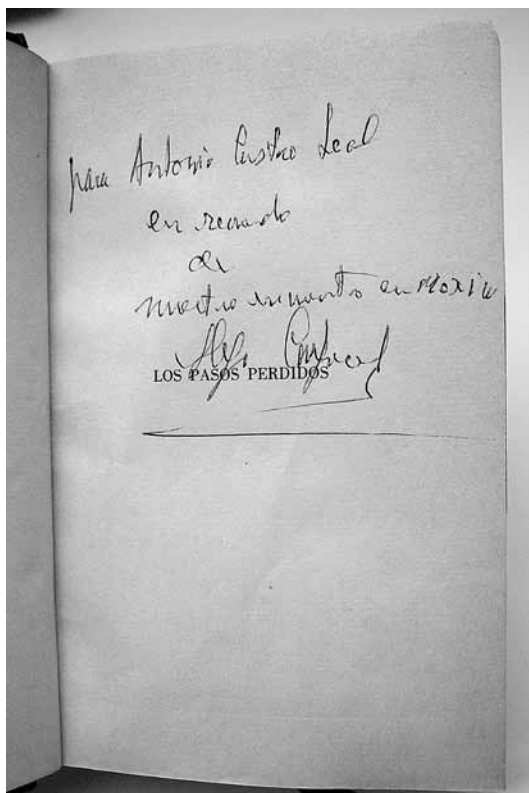 para Antonio Castro Leal
en recuerdo
de
nuestro encuentro en México
Alejo Carpentier
LOS PASOS PERDIDOS